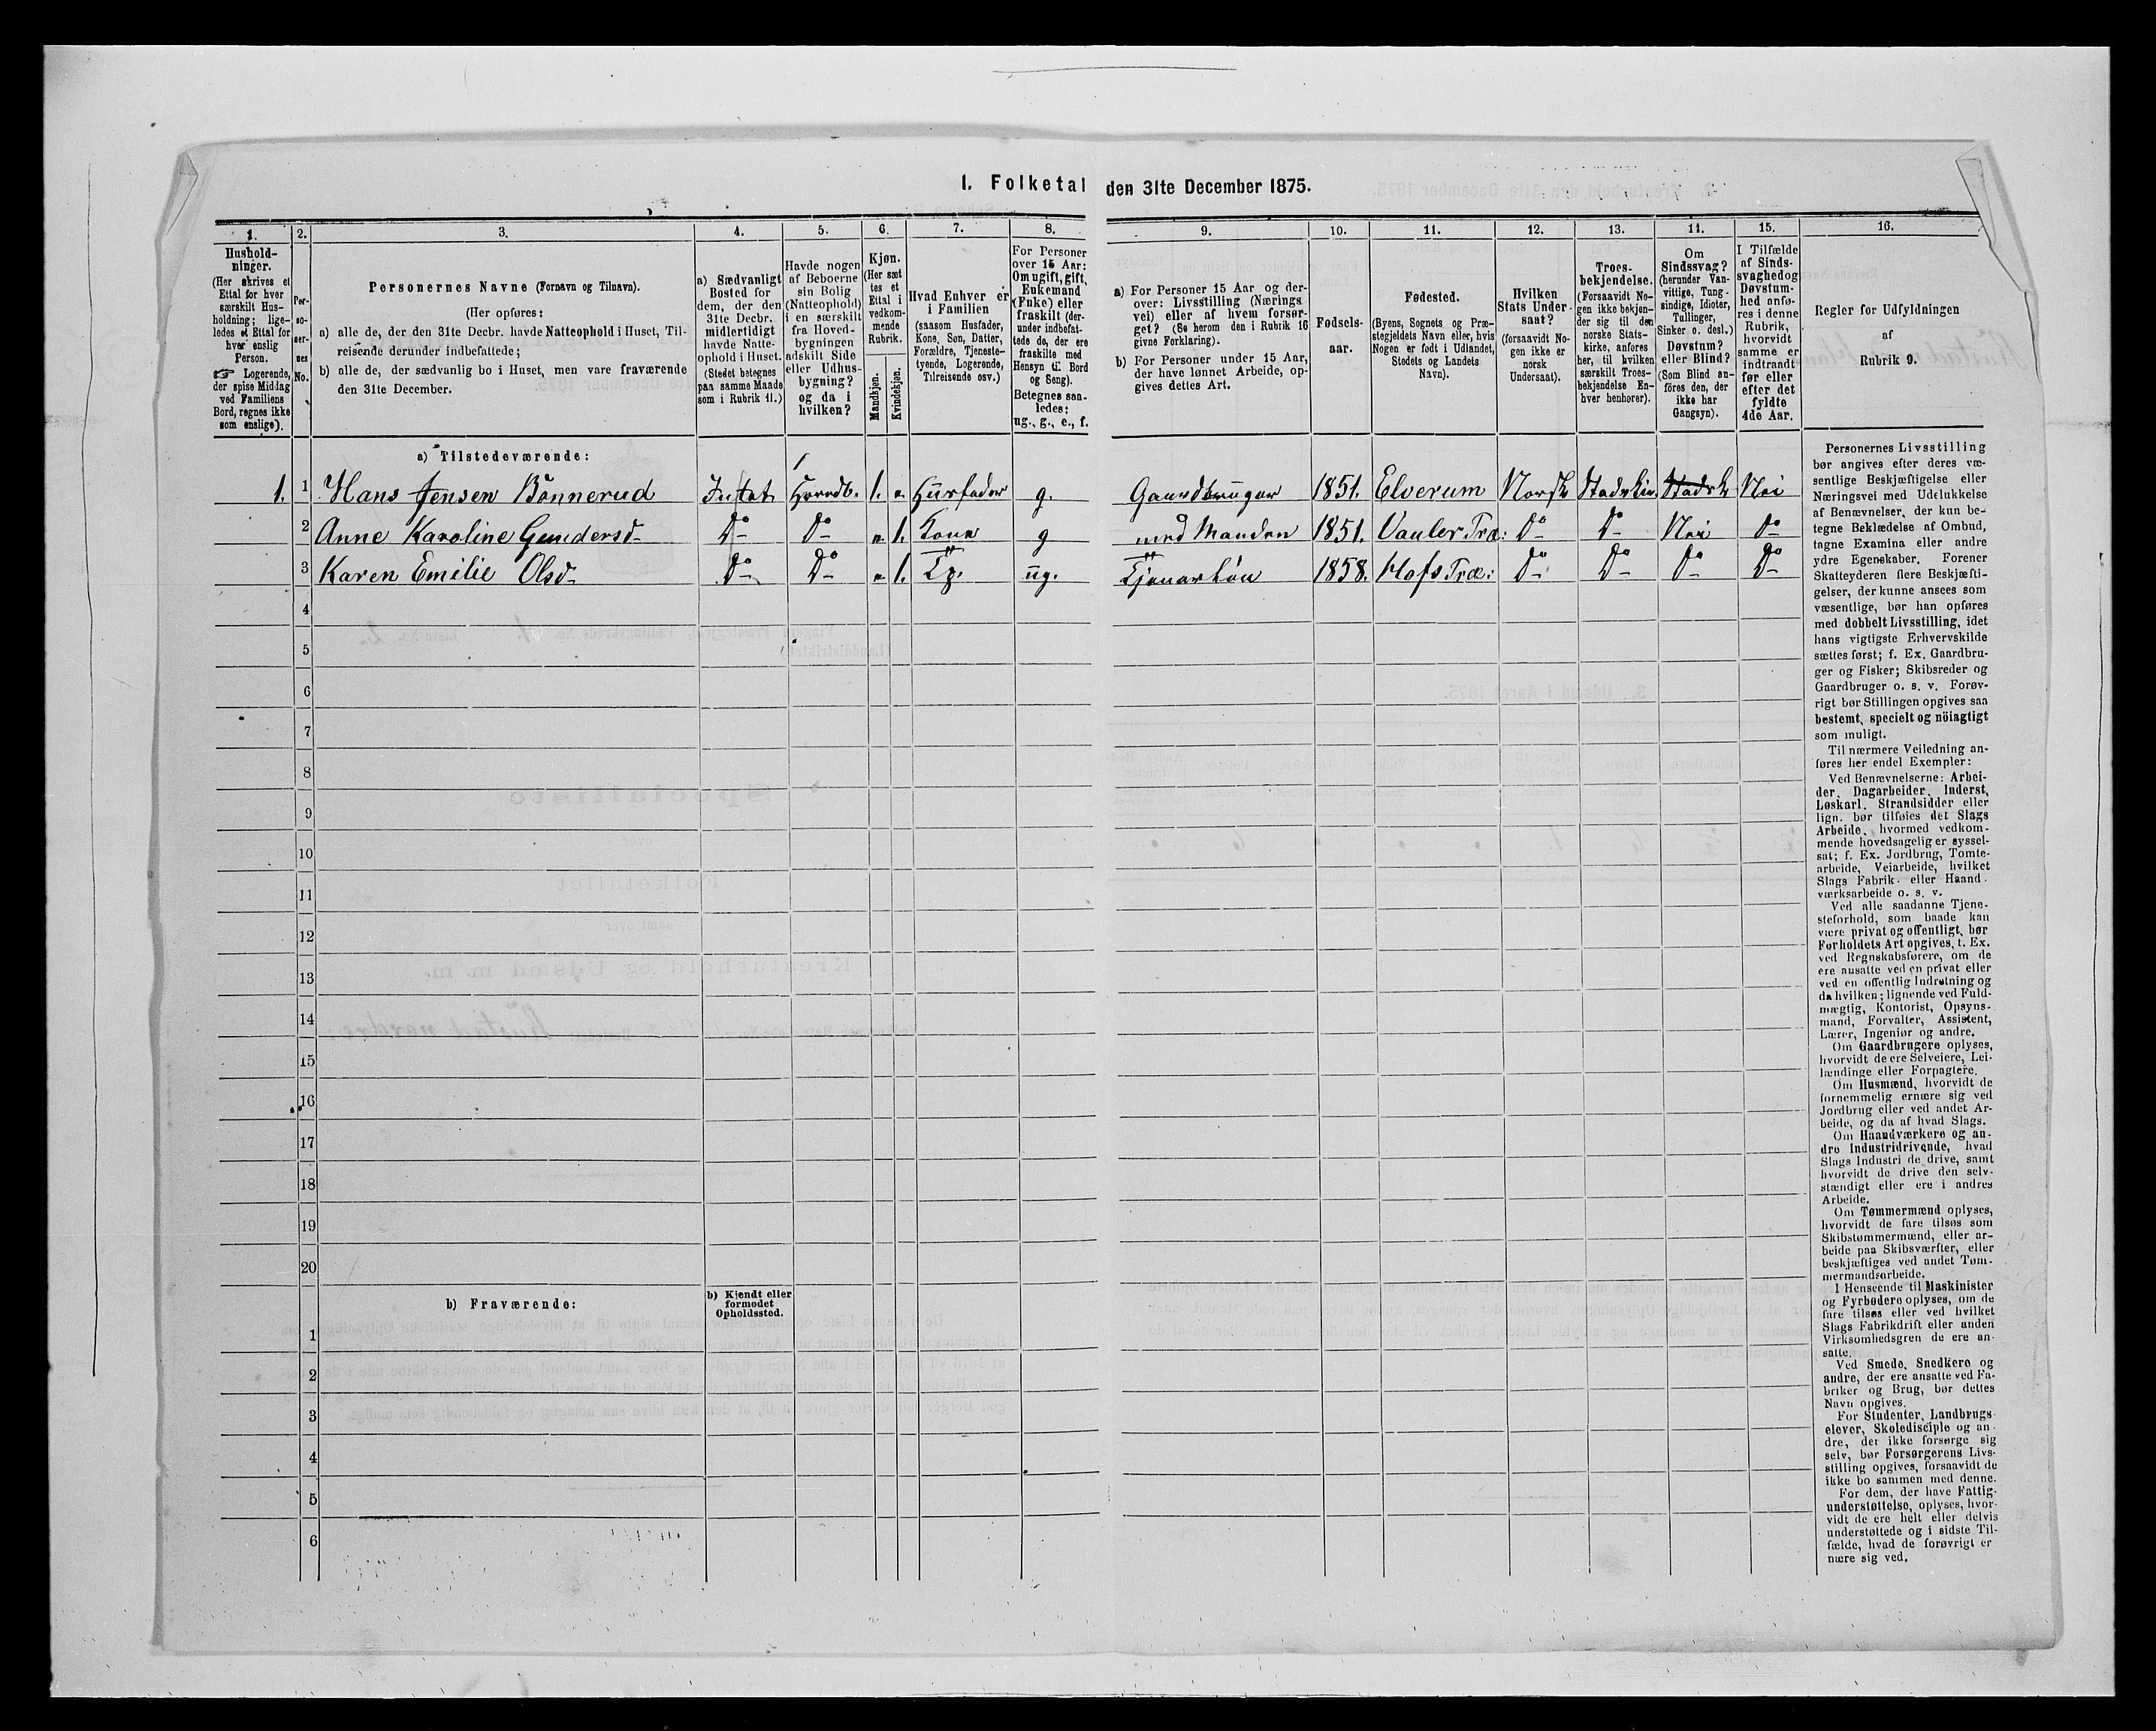 1. Folketal den 31te December 1875.
1.
2.
3.
4.
5.
6.
7.
8.
9.
10.
11.
12.
13.
14.
15.
16.
Hushold-
ninger.
(Her skrives et
Ettal for hver
særskilt Hus-
holdning; lige-
ledes et Ettal for
hver enslig
Person.
☞ Logerende,
der spise Middag
ved Familiens
Bord, regnes ikke
som enslige).
Per-
so-
ner-
nes
No.
Personernes Navne (Fornavn og Tilnavn).
(Her opføres:
a) alle de, der den 31te Decbr. havde Natteophold i Huset, Til-
reisende derunder indbefattede;
b) alle de, der sædvanlig bo i Huset, men vare fraværende
den 31te December.
a) Sædvanligt
Bosted for
dem, der den
31te Decbr.
midlertidigt
havde Natte-
ophold i Huset.
(Stedet betegnes
paa samme Maade
som i Rubrik 11.)
Havde nogen
af Beboerne
sin Bolig
(Natteophold)
i en særskilt
fra Hoved-
bygningen
adskilt Side
eller Udhus-
bygning?
og da i
hvilken?
Kjøn.
(Her sæt
tes et
Ettal i
vedkom-
mende
Rubrik.
Mandkjøn.
Kvindekjøn.
Hvad Enhver er
i Familien
(saasom Husfader,
Kone, Søn, Datter,
Forældre, Tjeneste-
tyende, Logerende,
Tilreisende osv.)
For Personer
over 15 Aar:
Om ugift, gift,
Enkemand
(Enke) eller
fraskilt (der-
under indbefat-
tede de, der ere
fraskilte med
Hensyn til Bord
og Seng).
Betegnes saa-
ledes:
ug., g., e., f.
a) For Personer 15 Aar og der-
over: Livsstilling (Nærings
vei) eller af hvem forsør-
get? (Se herom den i Rubrik 16
givne Forklaring).
b) For Personer under 15 Aar,
der have lønnet Arbeide, op-
gives dettes Art.
Fødsels-
aar.
Fødested.
(Byens, Sognets og Præ-
stegjeldets Navn eller, hvis
Nogen er født i Udlandet,
Stedets og Landets
Navn).
Hvilken
Stats Under-
saat?
(forsaavidt No-
gen ikke er
norsk
Undersaat).
Troes-
bekjendelse.
(Forsaavidt No-
gen ikke bekjen-
der sig til den
norske Stats-
kirke, anføres
her, til hvilken
særskilt Troes-
bekjendelse En-
hver henhører).
Om
Sindssvag?
(herunder Van-
vittige, Tung-
sindige, Idioter,
Tullinger,
Sinker o. desl.)
Døvstum?
eller Blind?
(Som Blind an-
føres den, der
ikke har
Gangsyn).
I Tilfælde
af Sinds-
svaghedog
Døvstum-
hed anfø-
res i denne
Rubrik,
hvorvidt
samme er
indtrandt
før eller
efter det
fyldte
4de Aar.
Regler for Udfyldningen
af
Rubrik 9.
a) Tilstedeværende:
1. 1 Hans Jensen Bönnerud 1. Husfader g. Gaardbruger 1851. Elverum Norsk Nei
2 Anne Karoline Gundersd. Do Do 1. Kone g med Manden 1851. Vaaler Præ: Do Do Nei Do
3 Karen Emilie Olsd. Do Do 1. ug. 1858. Hofs Præ: Do Do Do Do
4
5
6
7
8
9
10
11
12
13
14
15
16
17
18
19
20
b) Fraværende:
b) Kjendt eller
formodet
Opholdssted.
1
2
3
4
5
6
Personernes Livsstilling
bør angives efter deres væ-
sentlige Beskjæftigelse eller
Næringsvei med Udelukkelse
af Benævnelser, der kun be-
tegne Beklædelse af Ombud,
tagne Examina eller andre
ydre Egenskaber. Forener
Skatteyderen flere Beskjæfti-
gelser, der kunne ansees som
væsentlige, bør han opføres
med dobbelt Livsstilling, idet
hans vigtigste Erhvervskilde
sættes først; f. Ex. Gaardbru-
ger og Fisker; Skibsreder og
Gaardbruger o. s. v. Forøv-
rigt bør Stillingen opgives saa
bestemt, specielt og nöiagtigt
som muligt.
Til nærmere Veiledning an-
føres her endel Exempler:
Ved Benævnelserne: Arbei-
der, Dagarbeider, Inderst,
Løskarl, Strandsidder eller
lign. bør tilføies det Slags
Arbeide, hvormed vedkom-
mende hovedsagelig er syssel-
sat; f. Ex. Jordbrug, Tomte-
arbeide, Veiarbeide, hvilket
Slags Fabrik- eller Haand-
værksarbeide o. s. v.
Ved alle saadanne Tjene-
steforhold, som baade kan
være privat og offentligt, bør
Forholdets Art opgives, t. Ex.
ved Regnskabsførere, om de
ere ansatte ved en privat eller
ved en offentlig Indretning og
da hvilken; lignende ved Fuld-
mægtig, Kontorist, Opsyns-
mand, Forvalter, Assistent,
Lærer, Ingeniør og andre.
Om Gaardbrugere oplyses,
hvorvidt de ere Selveiere, Lei-
lændinge eller Forpagtere.
Om Husmænd, hvorvidt de
fornemmelig ernære sig ved
Jordbrug eller ved andet Ar-
beide, og da af hvad Slags.
Om Haandværkere og an-
dre Industridrivende, hvad
Slags Industri de drive, samt
hvorvidt de drive den selv-
stændigt eller ere i andres
Arbeide.
Om Tømmermænd oplyses,
hvorvidt de fare tilsøs som
Skibstømmermænd, eller ar-
beide paa Skibsværfter, eller
beskjæftiges ved andet Tøm-
mermandsarbeide.
I Henseende til Maskinister
og Fyrbødere oplyses, om de
fare tilsøs eller ved hvilket
Slags Fabrikdrift eller anden
Virksomhedsgren de ere an-
satte.
Ved Smede, Snedkere og
andre, der ere ansatte ved Fa-
briker og Brug, bør dettes
Navn opgives.
For Studenter, Landbrugs-
elever, Skoledisciple og an-
dre, der ikke forsørge sig
selv, bør Forsørgerens Livs-
stilling opgives, forsaavidt de
ikke bo sammen med denne.
For dem, der have Fattig-
understøttelse, oplyses, hvor-
vidt de ere helt eller delvis
understøttede og i sidste Til-
fælde, hvad de forøvrigt er
nære sig ved.